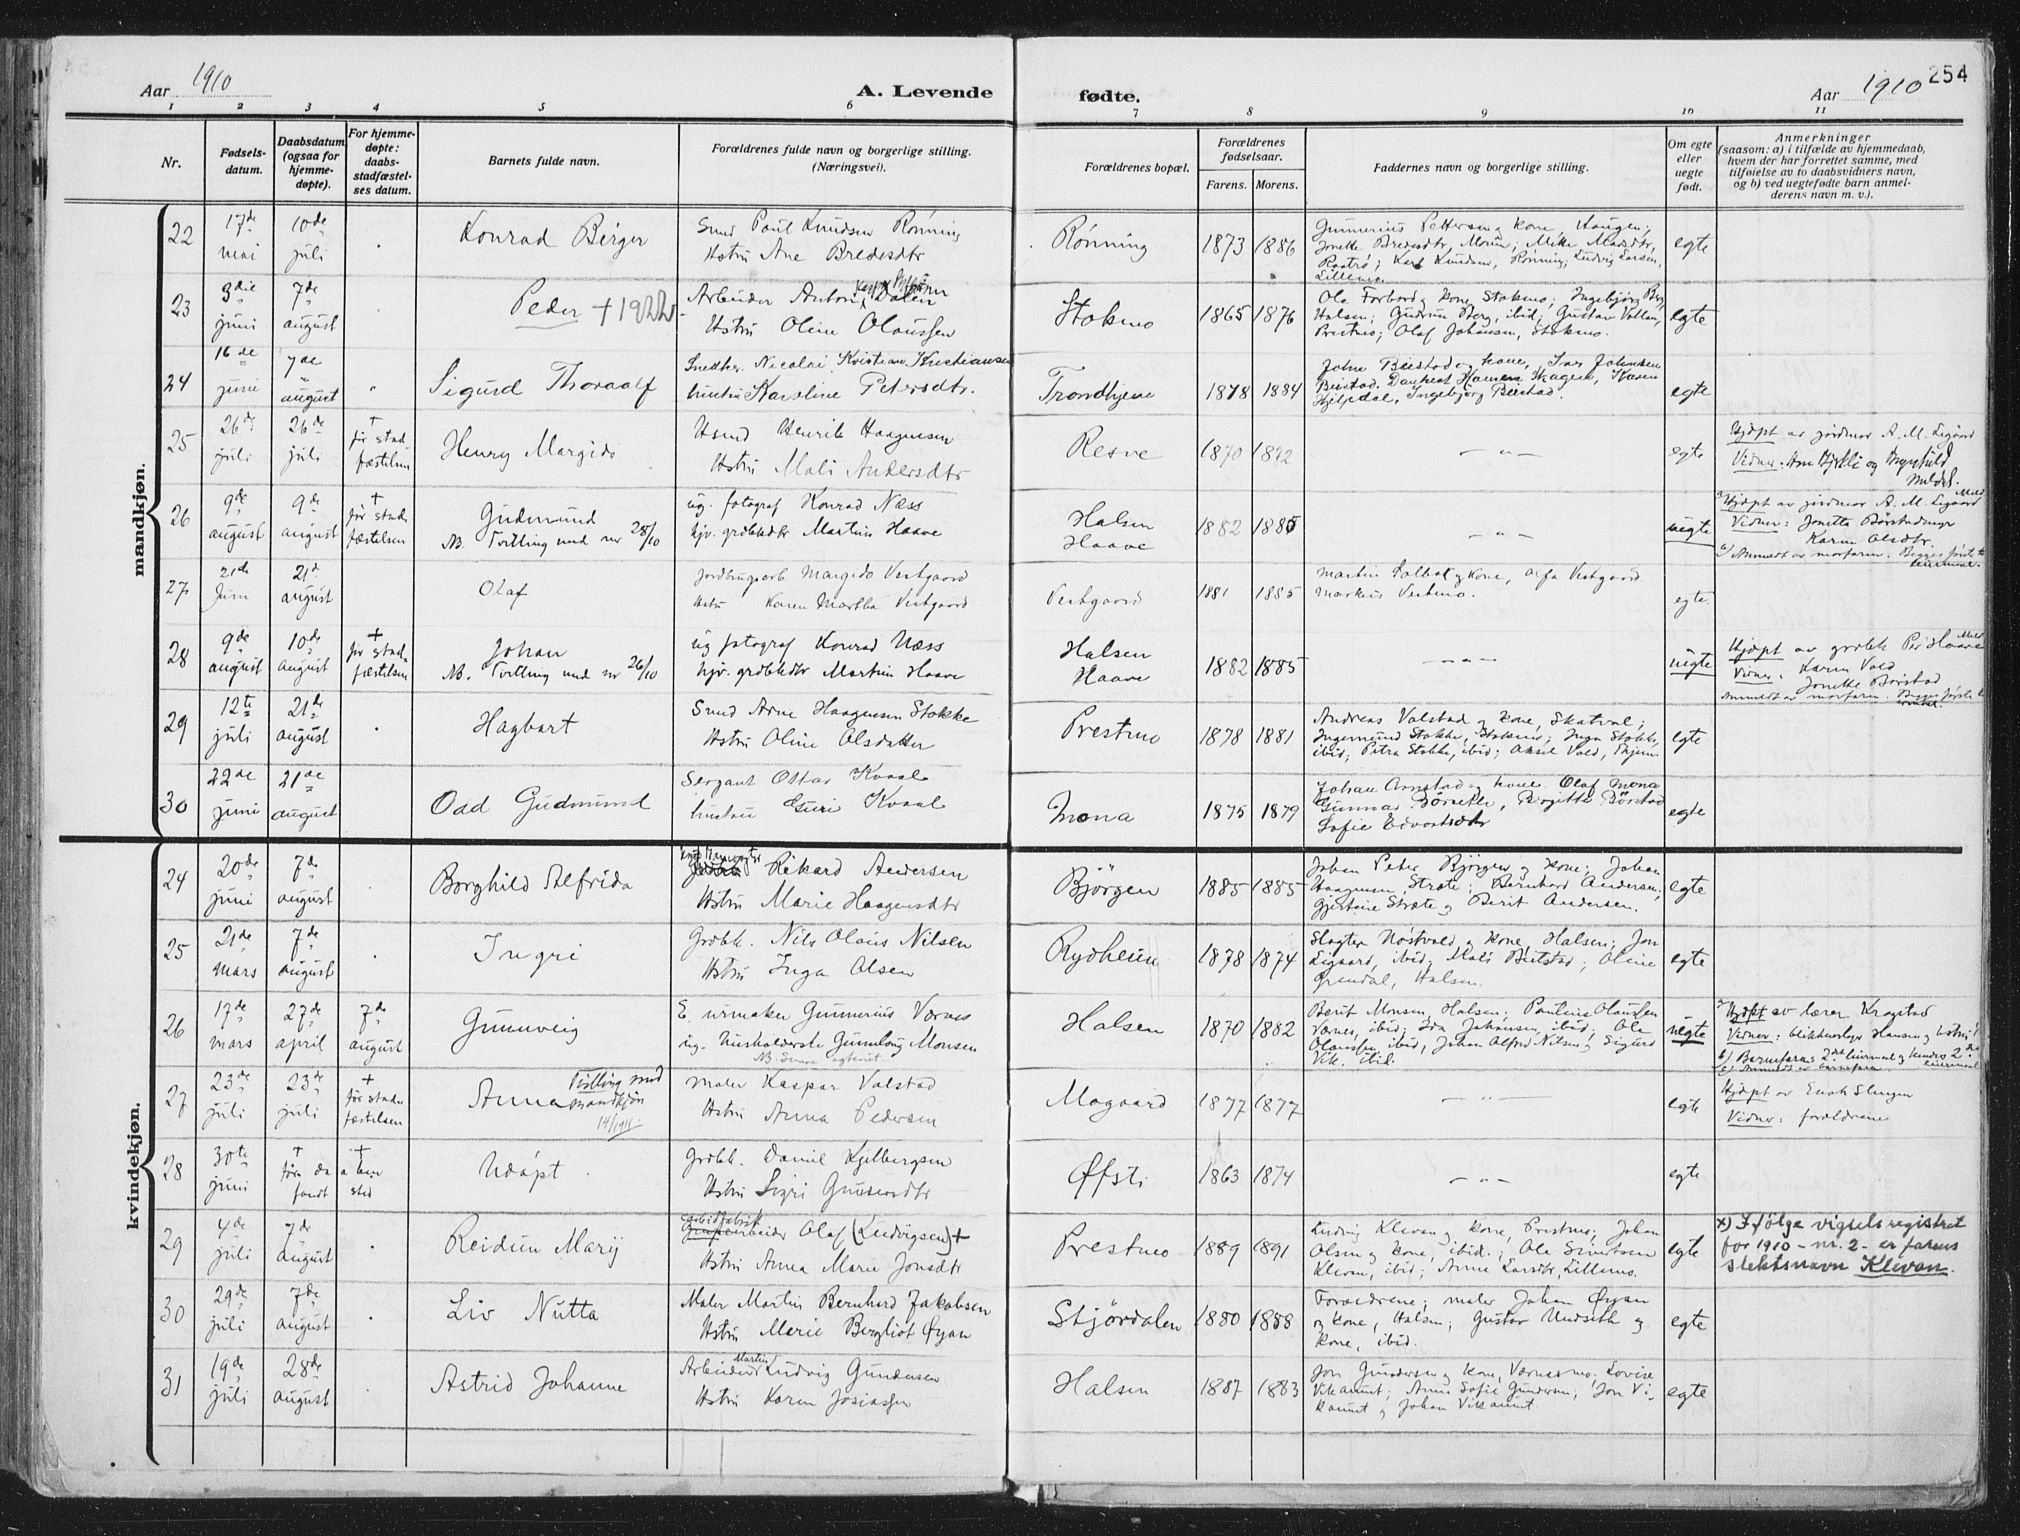 254
Aar 1910
A. Levende
fødte.
Aar 1910
1 2 3 4 5 6 7 8 9 10 11
Nr.
Fødsels-
datum.
Daabsdatum
(ogsaa for
hjemme-
døpte).
For hjemme-
døpte:
daabs-
stadfæstel-
ses datum.
Barnets fulde navn.
Forældrenes fulde navn og borgerlige stilling.
(Næringsvei).
Forældrenes bopæl.
Forældrenes
fødselsaar.
Farens. Morens.
Faddernes navn og borgerlige stilling.
Om egte
eller
uegte
født.
Anmerkninger
(saasom: a) i tilfælde av hjemmedaab,
hvem der har forrettet samme, med
tilføielse av to daabsvidners navn,
og b) ved uegtefødte barn anmel-
derens navn m. v.).
mandkjøn.
22 17de mai 10de juli Konrad Berger
Smed Paul Knudsen Rønning
Hstru Ane Bredesdtr
Rønning 1873 1886
Gunnerius Pettersen og kone, Haugen;
Jonette Bredesdtr, Moum;
Karl Knudsen, Rønning; Ludvig Larsen,
Lillemo.
egte
23 3die juni 7de august Peder + 1922
Arbeider Anton Dalen
Hstru Oline Olaussen
Stokmo 1865 1876
Ole Forbord og kone, Stokmo; Ingebjørg Berg
Halsen; Gudrun Berg, ibid; Gustav Vollan,
Prestmo; Olaf Johansen, Stokmo.
egte
24 16de juni 7de august Sigurd Thoraalf
Nicolai Kristian Kristiansen
hustru Karoline Petersdtr.
Trondhjem 1878 1884
Ingebjørg Beistad.
egte
25 26de juli 26de juli + før stad-
fæstelsen
Henry Margido
Hsmd Henrik Haagensen
Hstru Mali Andersdtr
Resve 1870 1872 — „ — egte
Hjdøpt av jordmor A. M. Ligaard
Vidner:
26 9de august 9de august + før stad-
fæstelsen
Gudmund
NB. Tvilling med nr 28/10
ug. fotograf Konrad Næss
pjv. grdbkdtr Martine Haave
Halsen
Haave
1882 1885 — „ — uegte
Hjdøpt av jordmor A. M. Ligaard
Vidner: Jonette Børstad og
Karen Olsdtr.
Anmeldt av morfaren. Begges første
leiermaal.
27 21de Juni 21de august Olaf
Jordbrugsarb. Margido Vestgaard
Hstru Karen Martha Vestgaard
Vestgaard 1881 1885
Martin Salbol og kone, Alfa Vestgaard
Markus Vestmo.
egte
28 9de august 10de august + før stad-
fæstelsen
Johan
NB. Tvilling med nr 26/10
ug fotograf Konrad Næss
pjv. grdbkdtr Martine Haave
Halsen
Haave
1882 1885 — „ — uegte
Hjdøpt av grdbk Per Haave
Vidner: Karen Vold
Jonette Børstad
Anmeldt av morfaren. Begges første
29 12te juli 21de august Hagbart
Smed Arne Haagensen Stokke
Hstru Oline Olsdatter
Prestmo 1878 1881
Andreas Valstad og kone, Skatval;
Ingemund Stokke, Stokmo; Inga Stokke,
ibid; Petra Stokke, ibid; Aksel Vold, Thjem
egte
30 22de juni 21de august Odd Gudmund
Sergant Ottar Kvaal
hustru Guri Kvaal
Mona 1875 1879
Johan Arnstad og kone Olaf Mona
Gunnar Børseth, Birgitte Børstad
Sofie Edvardsdtr
egte
kvindekjøn.
24 20de juni 7de august Borghild Alfrida
Rikard Andersen
Hstru Marie Haagensdtr
Bjørgen 1885 1885
Johan Peter Bjørgen og kone; Johan
Haagensen, Stræte; Bernhard Andersen;
Gjertine Stræte og Berit Andersen.
egte
25 21de mars 7de august Ingri
Grdbk. Nils Olaus Nilsen
Hstru Inga Olsen
Rydheim 1878 1874
Slagter Nøstvold og kone, Halsen; Jon
Ligaard, ibid; Mali Beitstad; Oline
Grendal, Halsen.
egte
26 17de mars 27de april 7de august Gunnveig
E. urmaker Gunnerius Værnes
ug. husholderste Gunnlaug Monsen
NB. Senere egteviet.
Halsen 1870 1882
Berit Monsen, Halsen; Pauline Olaussen
Værnes, ibid; Ida Johansen, ibid; Ole
Olaussen ibid, Johan Alfred Nilsen og Sigurd
Vik, ibid.
uegte
Hjdøpt av lærer Kragstad
Vidner: blikkenslager Hansen og hstru
b) Barnefarens 2det leiermaal og hendes 2det
c) Anmeldt av barnefaren leiermaal
27 23de juli 23de juli + før stad-
fæstelsen
Anna
Tvilling med
mandkjøn
14/1911
Maler Kaspar Valstad
Hstru Anna Pedersen
Mogaard 1877 1877 — „ — egte
Hjdøpt av Enok Slungen
Vidner: forældrene
28 30te juni + før da + a ben
fandt sted
Udøpt
Grdbk. Daniel Kjelbergsen
Hstru Sigri Gunnersdtr
Øfsti 1863 1874 — „ — egte
29 4de juli 7de august Reidun Marij
arbeider Olaf (Ludvigsen) +
Hstru Anna Marie Jonsdtr
Prestmo 1889 1891
Ludvig Klevan og kone, Prestmo; Johan
Olsen og kone, ibid.; Ole Sivertsen
Klevan, ibid; Anne Larsdtr, Lillemo.
egte
x) Ifølge vigselsregistret
for 1910 - nr. 2 - er farens
slektsnavn Klevan.
30 29de juli 7de august Liv Nutta
Maler Martin Bernhard Jakobsen
Hstru Marie Bergliot Øyan
Stjørdalen 1880 1888
Forældrene; maler Johan Øyan
og kone, Halsen; Gustav Undseth og
kone, ibid.
egte
31 19de juli 28de august Astrid Johanne
Arbeider Martin Ludvig Gundersen
Hstru Karen Josiassen
Halsen 1887 1883
Jon Gundersen og kone, Værnesmo; Lovise
Vikaunet; Anne Sofie Gundersen; Jon Vi-
kaunet og Johan Vikaunet.
egte